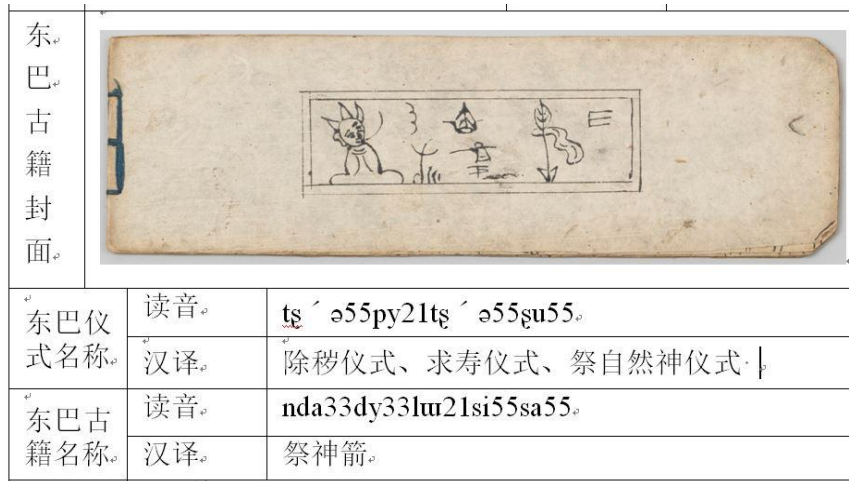 东
巴
古
籍
封
面
东巴仪
式名称
读音
tʂ´ə55py21tʂ´ə55ʂu55
汉译
除秽仪式、求寿仪式、祭自然神仪式
东巴古
籍名称
读音
nda33dy33lɯ21si55sa55
汉译
祭神箭